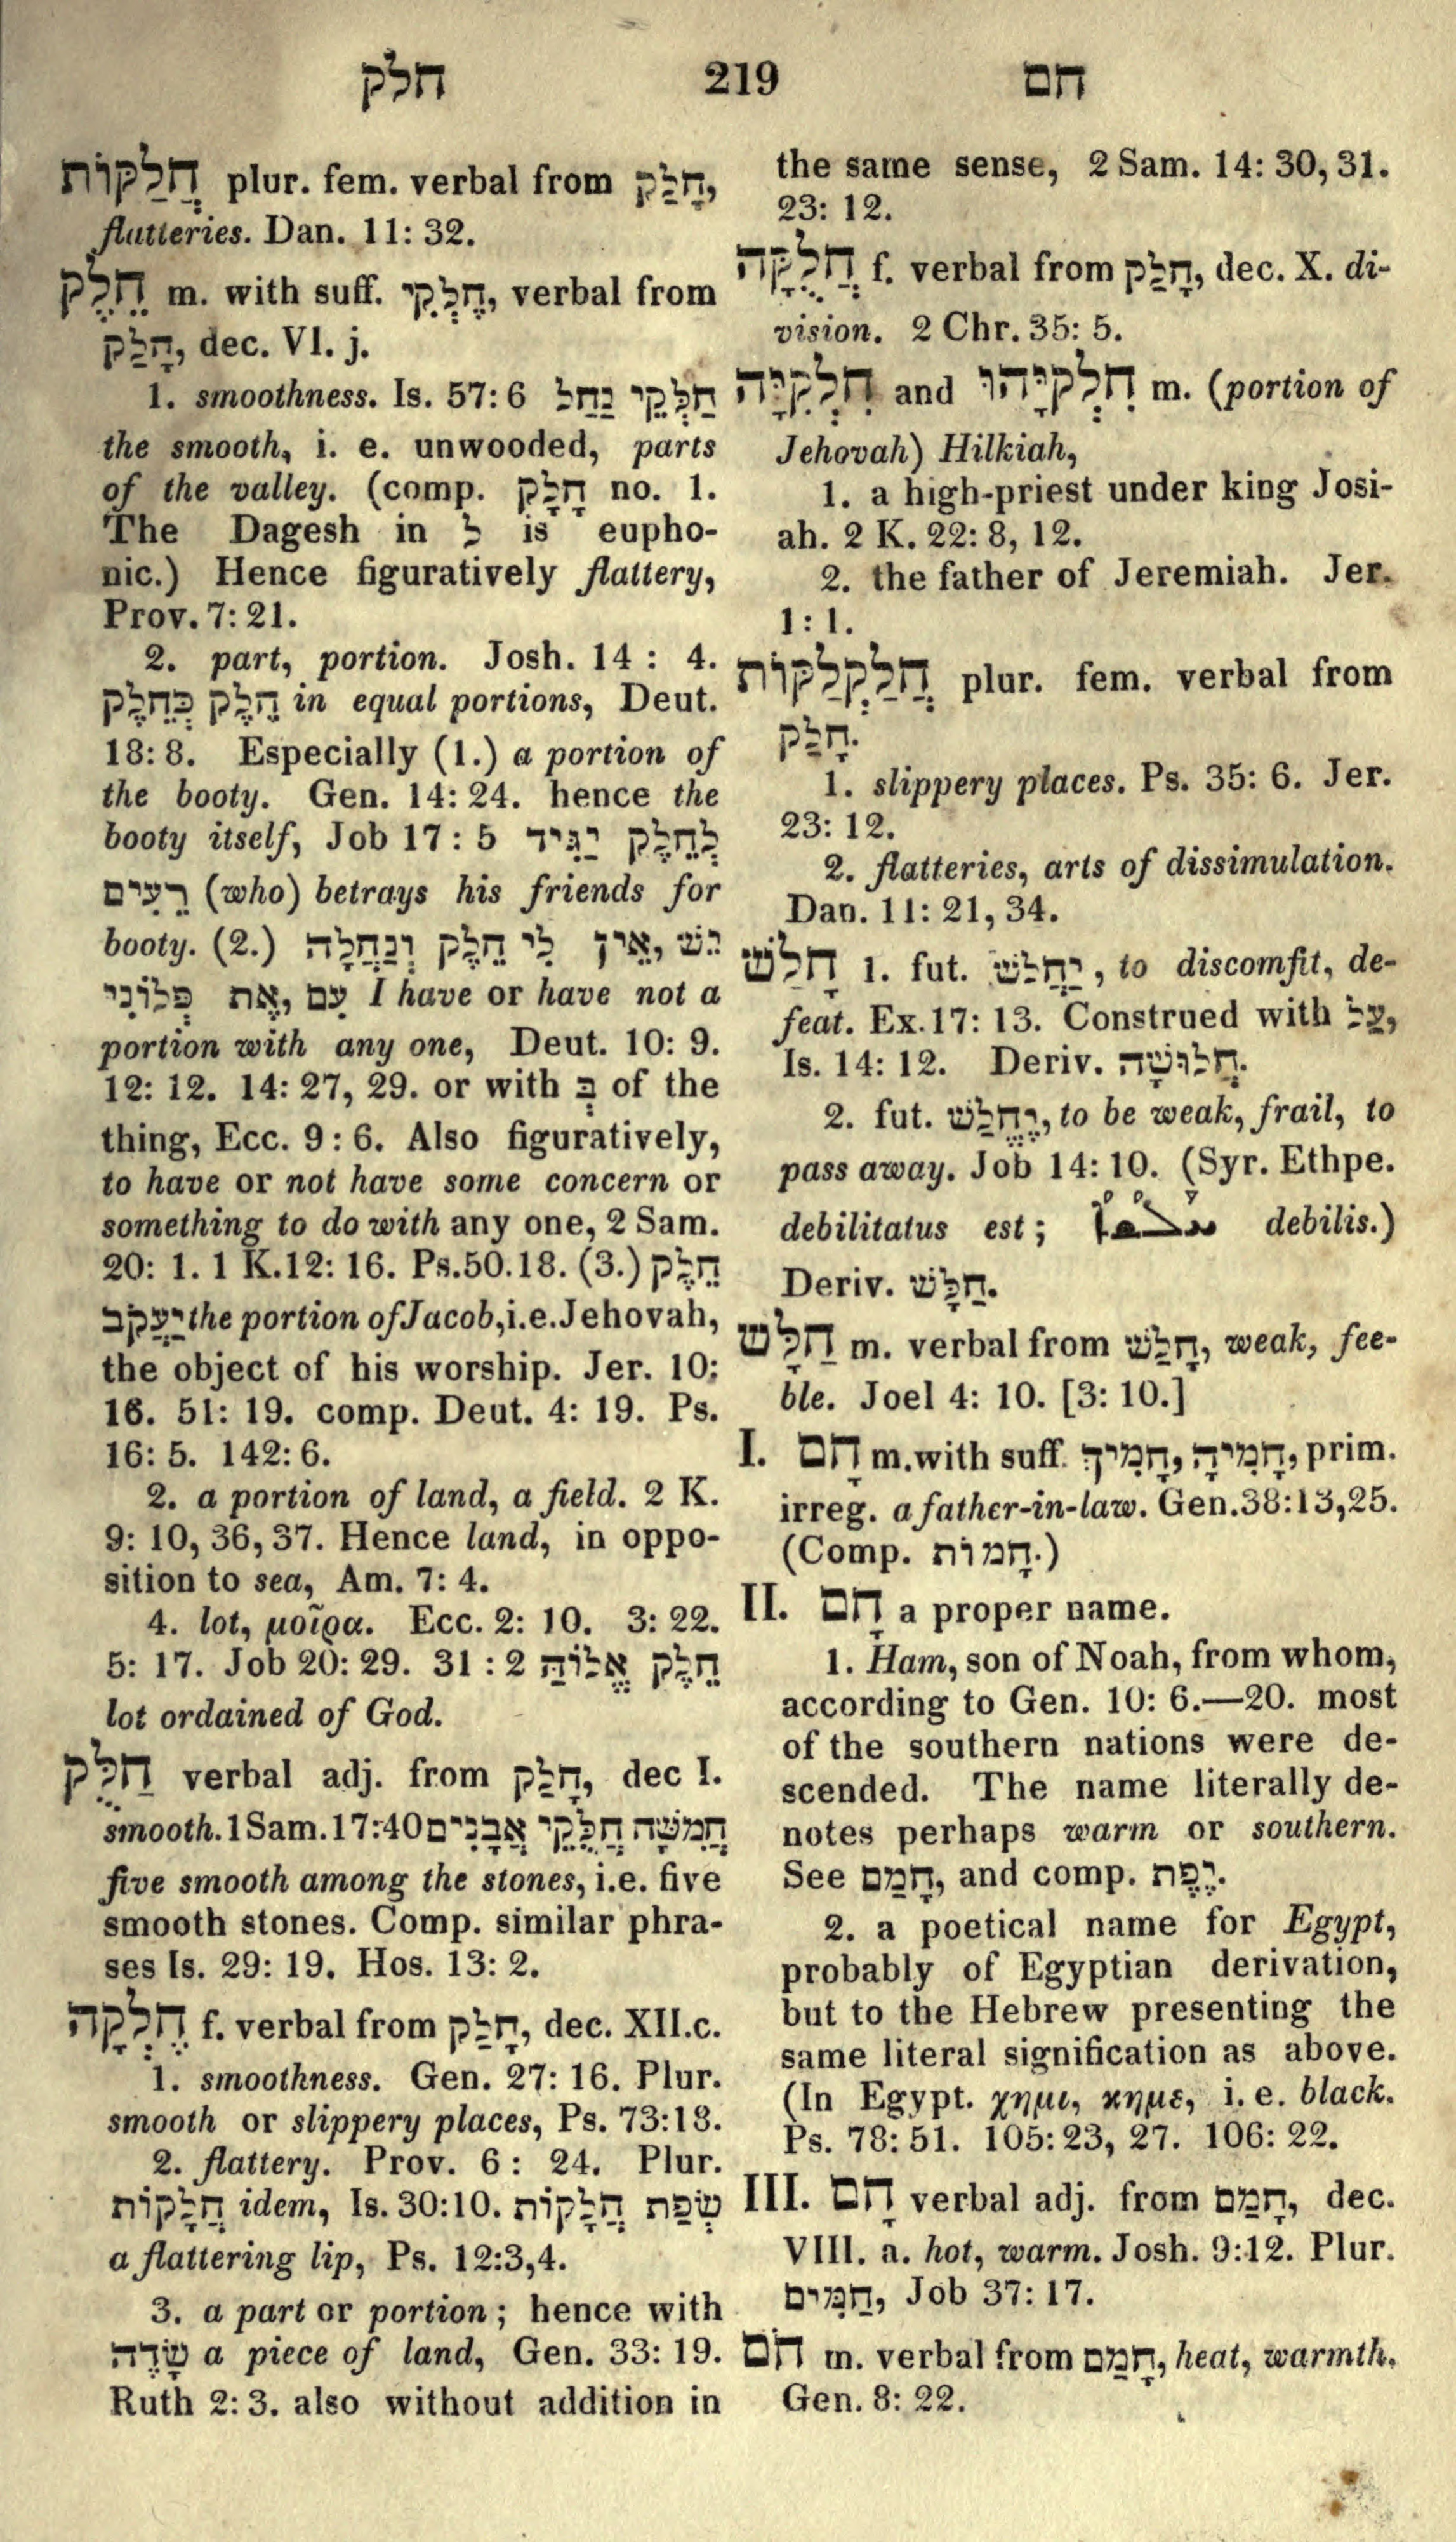 חלק 219 חם
חֲלַקּוֹת plur. fem. verbal from חָלַק,
flatteries. Dan. 11: 32.
חֵלֶק m. with suff. חֶלְקִי, verbal from
חָלַק, dec. VI. j.
1. smoothness. Is. 57: 6 חַלְּקֵי נַחַל
the smooth, i. e. unwooded, parts
of the valley. (comp. חָלָק no. 1.
The Dagesh in ל is eupho-
nic.) Hence figuratively flattery,
Prov. 7: 21.
2. part, portion. Josh. 14 : 4.
חֵלֶק כְּחֵלֶק in equal portions, Deut.
18: 8. Especially (1.) a portion of
the booty. Gen. 14: 24. hence the
booty itself, Job 17 : 5 לְחֵלֶק יַגִּיד
רֵעִים (who) betrays his friends for
booty. (2.) יֵשׁ, אֵין לִי חֵלֶק וְנַחֲלָה
עִם, אֶת פְּלוֹנִי I have or have not a
portion with any one, Deut. 10: 9.
12: 12. 14: 27, 29. or with בְּ of the
thing, Ecc. 9 : 6. Also figuratively,
to have or not have some concern or
something to do with any one, 2 Sam.
20: 1. 1 K.12: 16. Ps.50.18. (3.) חֵלֶק
יַעֲקֹב the portion of Jacob, i.e. Jehovah,
the object of his worship. Jer. 10:
16. 51: 19. comp. Deut. 4: 19. Ps.
16: 5. 142: 6.
2. a portion of land, a field. 2 K.
9: 10, 36, 37. Hence land, in oppo-
sition to sea, Am. 7: 4.
4. lot, μοῖρα. Ecc. 2: 10. 3: 22.
5: 17. Job 20: 29. 31 : 2 חֵלֶק אֱלוֹהַּ
lot ordained of God.
חַלֻּק verbal adj. from חָלַק, dec I.
smooth. 1 Sam. 17:40 חֲמִשָּׁה חֲלֻּקֵי אֲבָנִים
five smooth among the stones, i.e. five
smooth stones. Comp. similar phra-
ses Is. 29: 19. Hos. 13: 2.
חֶלְקָה f. verbal from חָלַק, dec. XII.c.
1. smoothness. Gen. 27: 16. Plur.
smooth or slippery places, Ps. 73:18.
2. flattery. Prov. 6 : 24. Plur.
חֲלָקוֹת idem, Is. 30:10. שְׂפַת חֲלָקוֹת
a flattering lip, Ps. 12:3,4.
3. a part or portion ; hence with
שָׂדֶה a piece of land, Gen. 33: 19.
Ruth 2: 3. also without addition in
the same sense, 2 Sam. 14: 30, 31.
23: 12.
חֲלֻקָּה f. verbal from חָלַק, dec. X. di-
vision. 2 Chr. 35: 5.
חִלְקִיָּה and חִלְקִיָּהוּ m. (portion of
Jehovah) Hilkiah,
1. a high-priest under king Josi-
ah. 2 K. 22: 8, 12.
2. the father of Jeremiah. Jer.
1: 1.
חֲלַקְלַקּוֹת plur. fem. verbal from
חָלַק.
1. slippery places. Ps. 35: 6. Jer.
23: 12.
2. flatteries, arts of dissimulation.
Dan. 11: 21, 34.
חָלַשׁ 1. fut. יַחֲלֹשׁ, to discomfit, de-
feat. Ex. 17: 13. Construed with עַל,
Is. 14: 12. Deriv. חֲלוּשָׁה.
2. fut. יֶחֱלַשׁ, to be weak, frail, to
pass away. Job 14: 10. (Syr. Ethpe.
debilitatus est ; debilis.)
Deriv. חַלָּשׁ.
חַלָּשׁ m. verbal from חָלַשׁ, weak, fee-
ble. Joel 4: 10. [3: 10.]
I. חָם m. with suff. חָמִיךְ, חָמִיהָ, prim.
irreg. a father-in-law. Gen.38:13,25.
(Comp. חָמוֹת.)
II. חָם a proper name.
1. Ham, son of Noah, from whom,
according to Gen. 10: 6.—20. most
of the southern nations were de-
scended. The name literally de-
notes perhaps warm or southern.
See חָמַם, and comp. יֶפֶת.
2. a poetical name for Egypt,
probably of Egyptian derivation,
but to the Hebrew presenting the
same literal signification as above.
(In Egypt. χημι, κημε, i. e. black.
Ps. 78: 51. 105: 23, 27. 106: 22.
III. חָם verbal adj. from חָמַם, dec.
VIII. a. hot, warm. Josh. 9:12. Plur.
חַמִּים, Job 37: 17.
חֹם m. verbal from חָמַם, heat, warmth.
Gen. 8: 22.